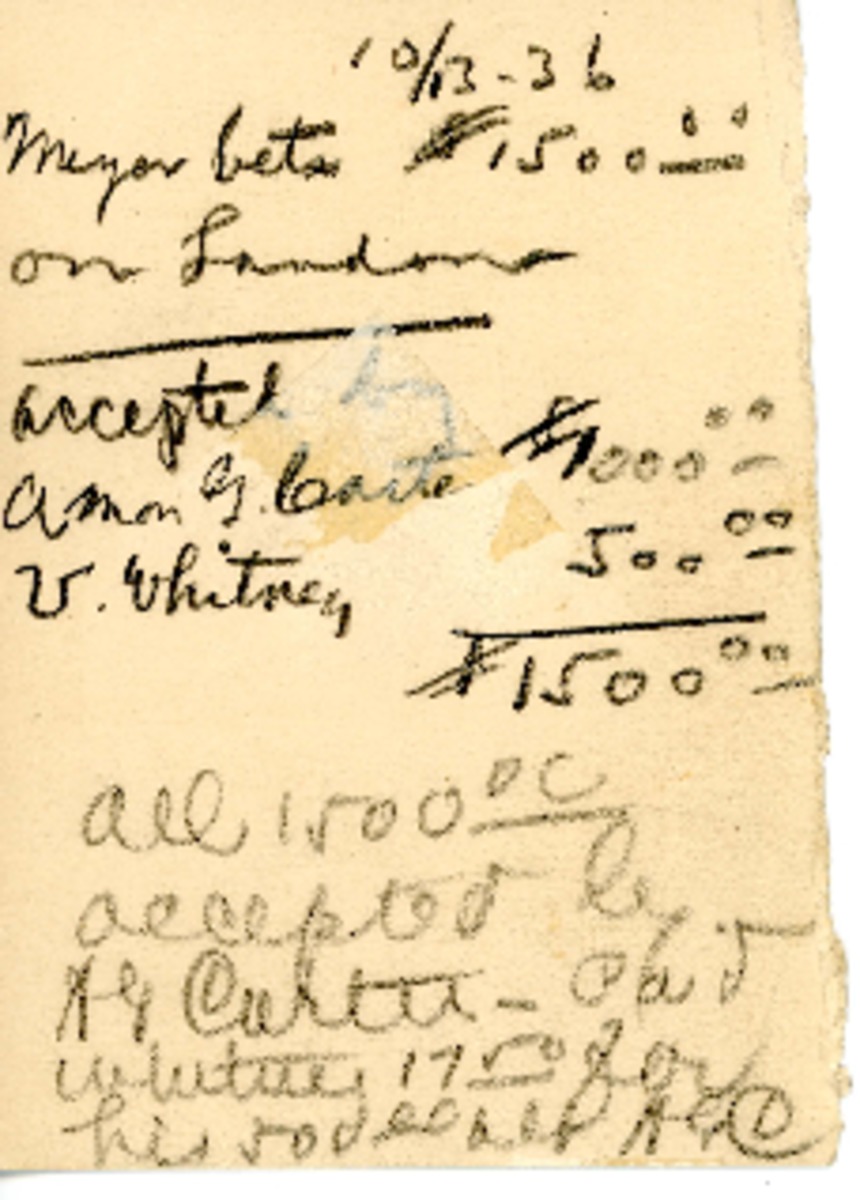 10/13-36
Meyer bets $1500.00
on Landon
accepted by
Amon G. Carter $1000.00
V. Whitney 500.00
$1500.00
all 1500.00
accepted by
AG Carter - Paid
Whitney 17.50 for
his 500.00 AGC